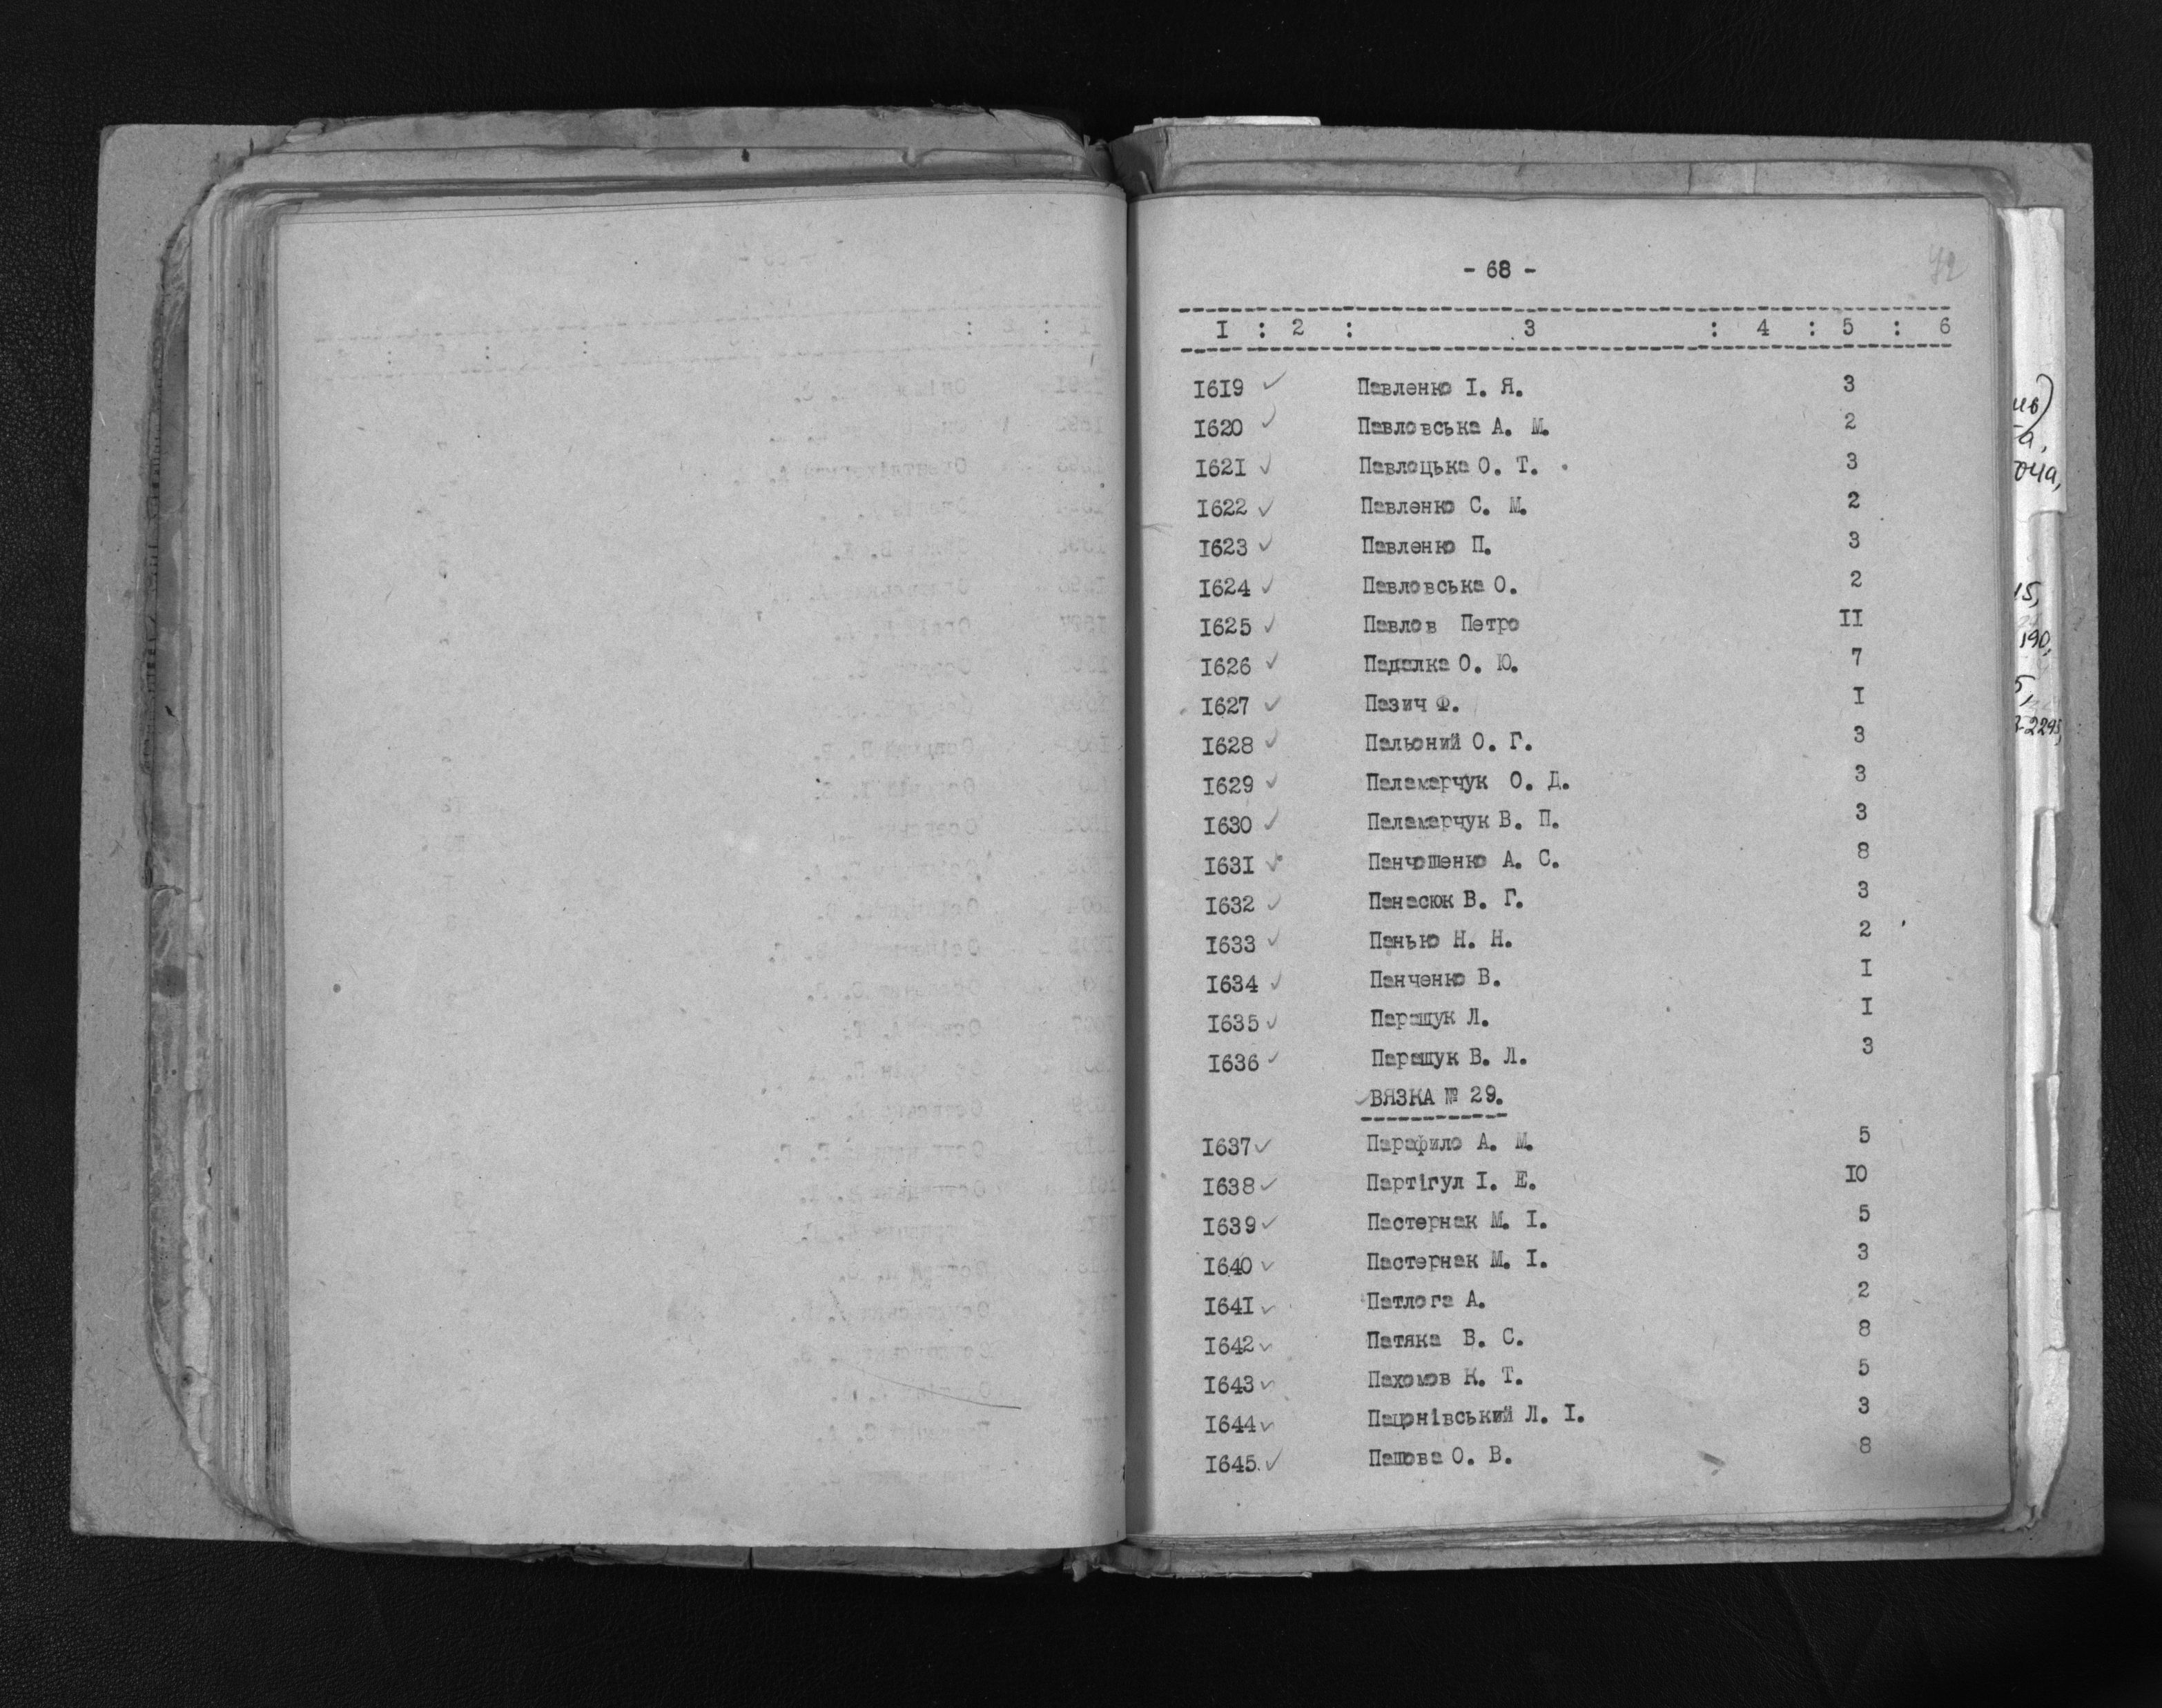 - 68 -
72
I : 2 : 3 : 4 : 5 : 6
I619 ✓ Павленко І. Я. 3
I620 ✓ Павловська А. М. 2
I621 ✓ Павлоцька О. Т. 3
I622 ✓ Павленко С. М. 2
I623 ✓ Павленко П. 3
I624 ✓ Павловська О. 2
I625 ✓ Павлов Петро II
I626 ✓ Падалка О. Ю. 7
I627 ✓ Пазич Ф. I
I628 ✓ Пальоний О. Г. 3
I629 ✓ Паламарчук О. Д. 3
I630 ✓ Паламарчук В. П. 3
I631 ✓ Панчошенко А. С. 8
I632 ✓ Панасюк В. Г. 3
I633 ✓ Панько Н. Н. 2
I634 ✓ Панченко В. I
I635 ✓ Паращук Л. I
I636 ✓ Паращук В. Л. 3
✓ ВЯЗКА № 29.
I637 ✓ Парафило А. М. 5
I638 ✓ Партігул І. Е. I0
I639 ✓ Пастернак М. І. 5
I640 ✓ Пастернак М. І. 3
I641 ✓ Патлога А. 2
I642 ✓ Патяка В. С. 8
I643 ✓ Пахомов К. Т. 5
I644 ✓ Пацонівський Л. І. 3
I645. ✓ Пашова О. В. 8
15,
190,
5,
-2295,